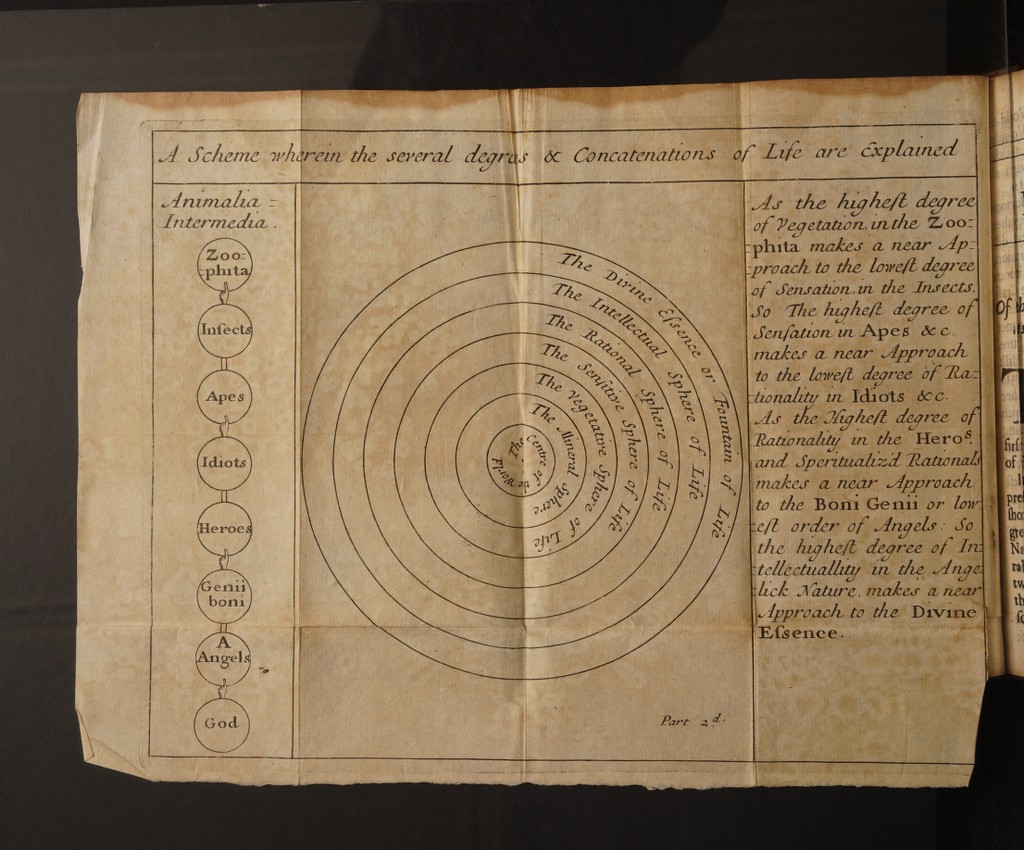 A Scheme wherein the several degres & Concatenations of Life are Explained
Animalia =
Intermedia.
Zoo=
phita
Inſects
Apes
Idiots
Heroes
Genii
boni
A
Angels
God
The Divine Eſsence or Fountain of Life
The Intellectual Sphere of Life
The Rational Sphere of Life
The Senſitive Sphere of Life
The Vegetative Sphere of Life
The Mineral Sphere of Life
The Centre of the World
Part 2d.
As the higheſt degree
of Vegetation, in the Zoo=
phita makes a near Ap=
proach to the loweſt degree
of Sensation, in the Insects.
So The higheſt degree of
Senſation in Apes &c.
makes a near Approach
to the loweſt degree of Ra=
tionality in Idiots &c.
As the Higheſt degree of
Rationality in the Heros.
and Speritualiz'd Rationals
makes a near Approach
to the Boni Genii or low=
eſt order of Angels: So
the higheſt degree of In=
tellectuallity in the Ange
lick Nature, makes a near
Approach to the Divine
Eſsence.